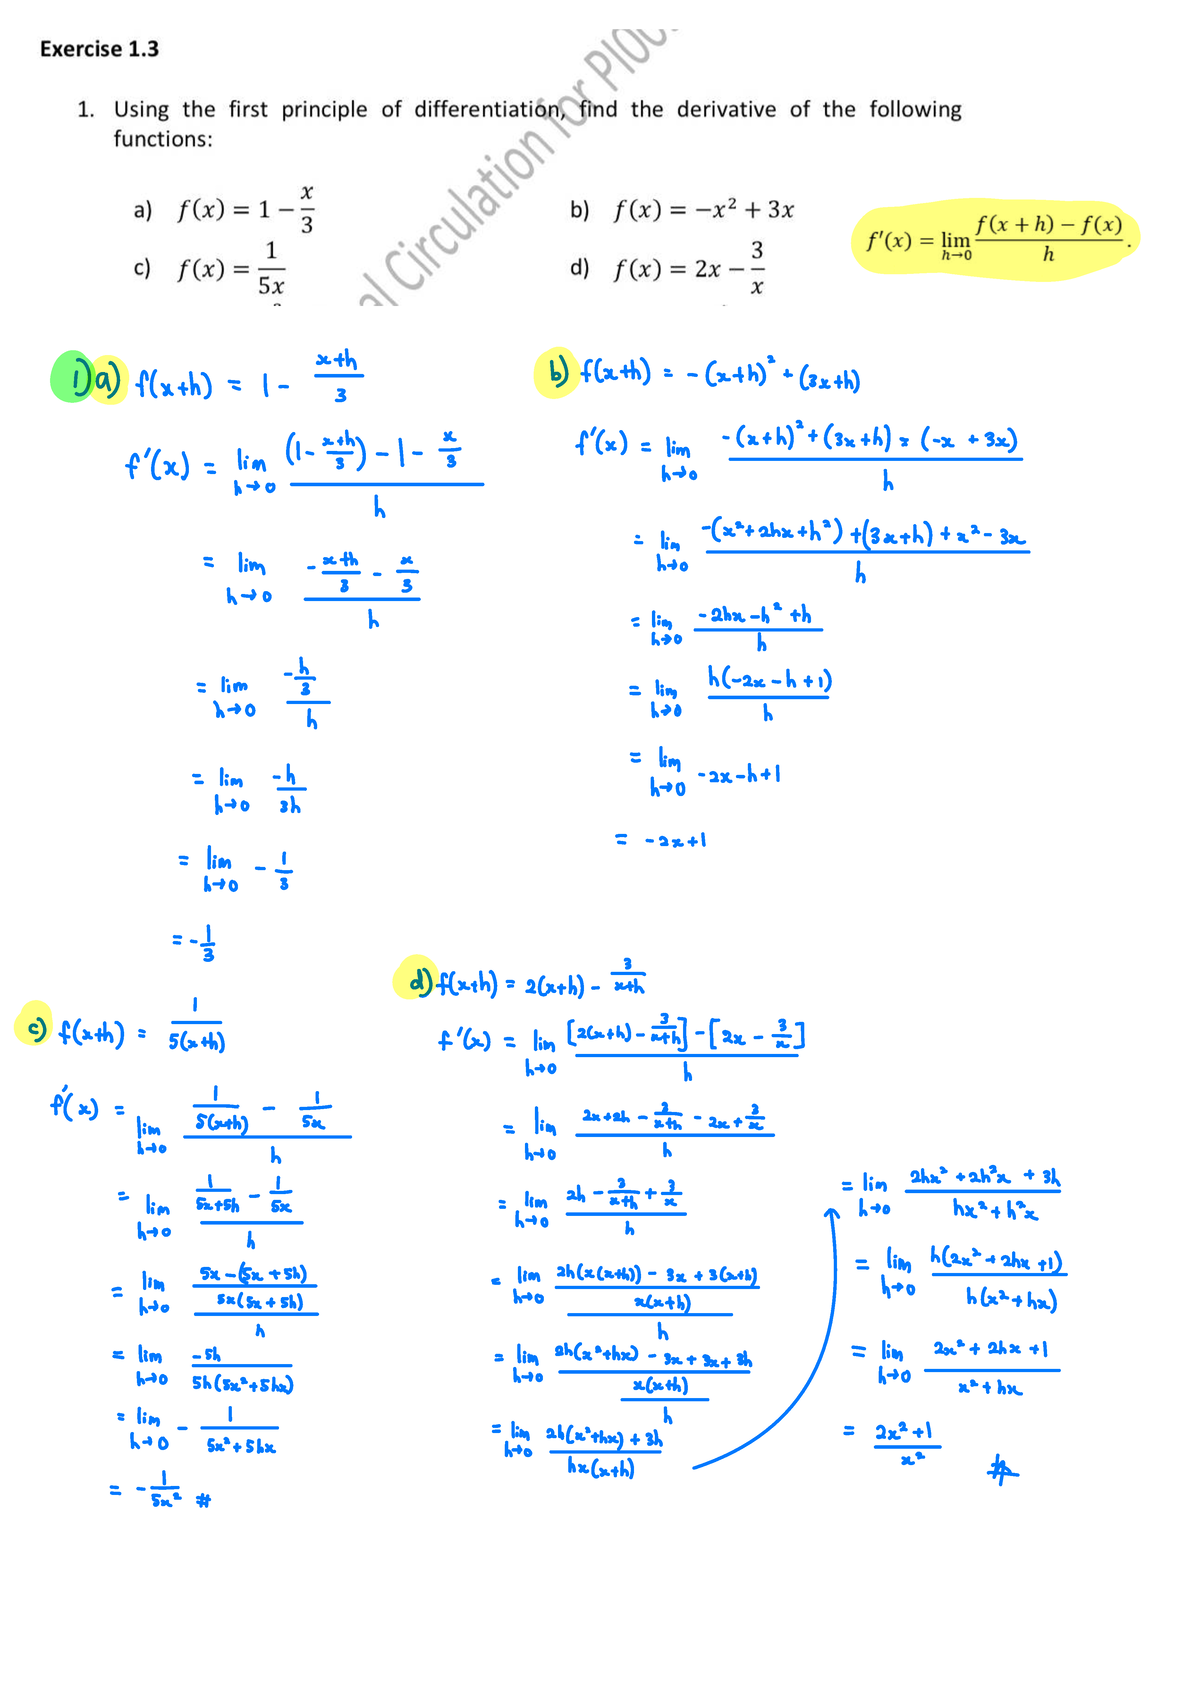 Exercise 1.3
1. Using the first principle of differentiation, find the derivative of the following
functions:
al Circulation for PIOC
a) f(x) = 1 − x/3
b) f(x) = −x² + 3x
f'(x) = lim h→0 (f(x + h) − f(x))/h.
c) f(x) = 1/5x
d) f(x) = 2x − 3/x
1) a) f(x+h) = 1 - (x+h)/3
f'(x) = lim h→0 ((1 - (x+h)/3) - 1 - x/3)/h
= lim h→0 (-(x+h)/3 - x/3)/h
= lim h→0 (-h/3)/h
= lim h→0 -h/3h
= lim h→0 -1/3
= -1/3
b) f(x+h) = -(x+h)² + (3x+h)
f'(x) = lim h→0 (-(x+h)² + (3x+h) = (-x + 3x))/h
= lim h→0 (-(x²+2hx+h²) + (3x+h) + x² - 3x)/h
= lim h→0 (-2hx - h² + h)/h
= lim h→0 h(-2x - h + 1)/h
= lim h→0 -2x - h + 1
= -2x + 1
c) f(x+h) = 1/5(x+h)
f'(x) = lim h→0 (1/5(x+h) - 1/5x)/h
= lim h→0 (1/(5x+5h) - 1/5x)/h
= lim h→0 ((5x - (5x + 5h))/5x(5x + 5h))/h
= lim h→0 -5h/5h(5x² + 5hx)
= lim h→0 - 1/(5x² + 5hx)
= - 1/5x² #
d) f(x+h) = 2(x+h) - 3/(x+h)
f'(x) = lim h→0 ([2(x+h) - 3/(x+h)] - [2x - 3/x])/h
= lim h→0 (2x + 2h - 3/(x+h) - 2x + 3/x)/h
= lim h→0 (2h - 3/(x+h) + 3/x)/h
= lim h→0 ((2h(x(x+h)) - 3x + 3(x+h))/x(x+h))/h
= lim h→0 ((2h(x²+hx) - 3x + 3x + 3h)/x(x+h))/h
= lim h→0 (2h(x²+hx) + 3h)/hx(x+h)
= lim h→0 (2hx² + 2h²x + 3h)/(hx² + h²x)
= lim h→0 h(2x² + 2hx + 1)/h(x² + hx)
= lim h→0 (2x² + 2hx + 1)/(x² + hx)
= (2x² + 1)/x² #